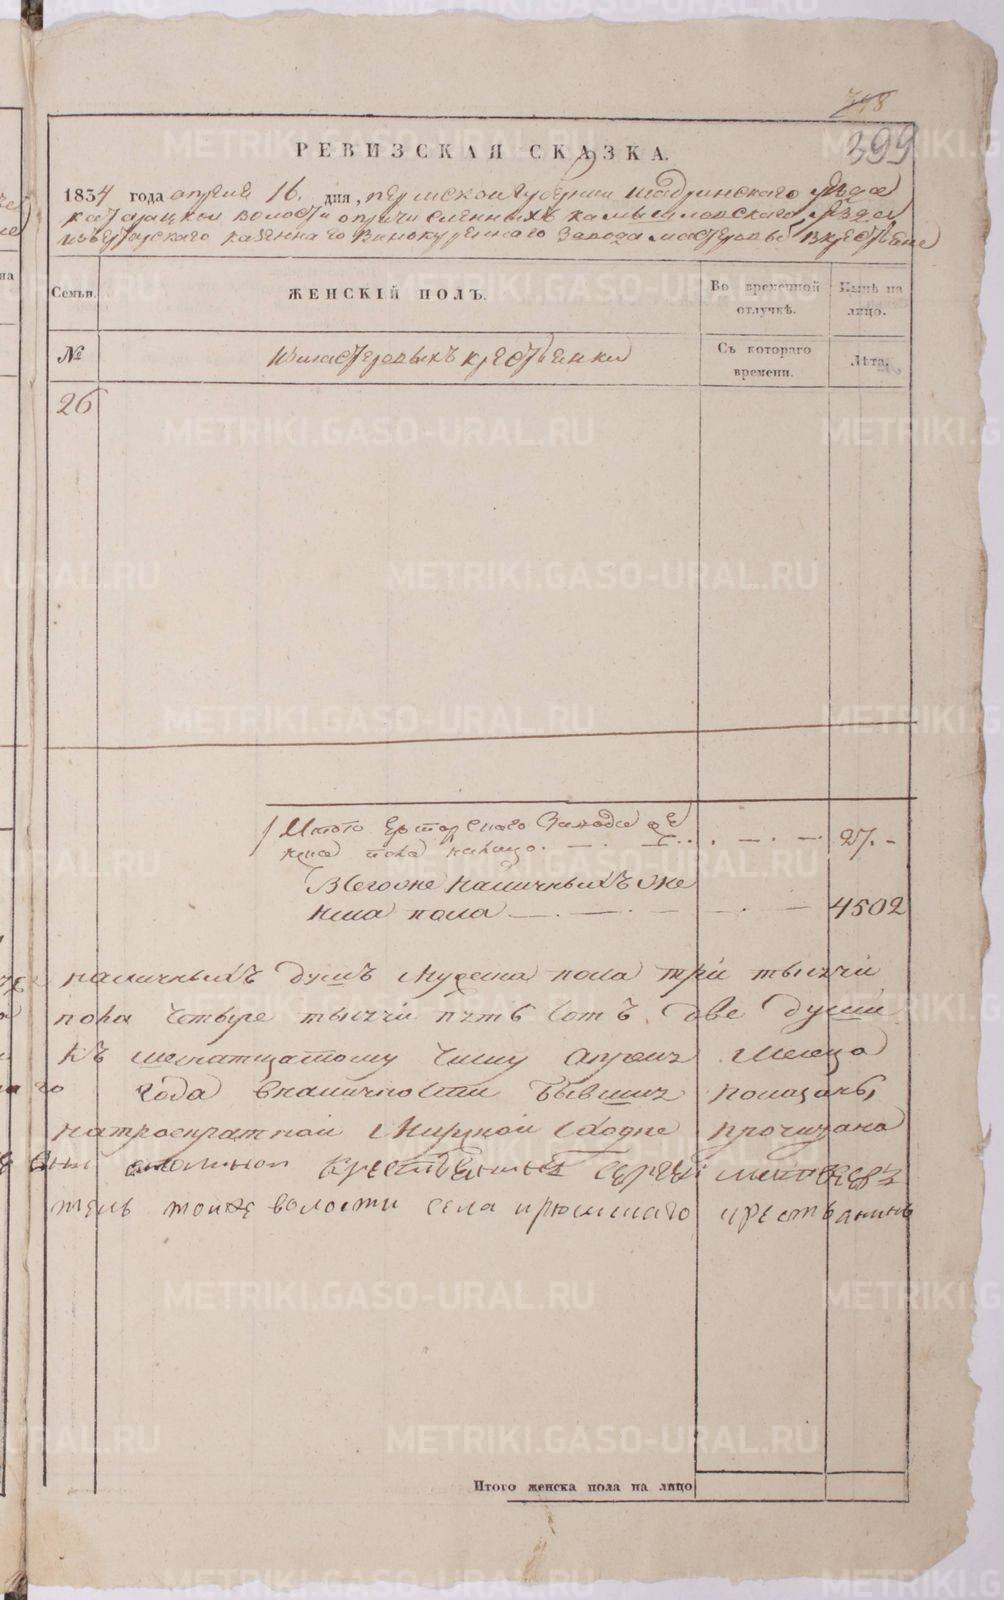 748
399
РЕВИЗСКАЯ СКАЗКА.
1834 года апреля 16. дня, пермской губернии Шадринскаго уезда
катайцкой волости опричисленныхъ камышловскаго уезда
казеннаго винокуреннаго завода мастеровые в крестьяне
Семьи. ЖЕНСКІЙ ПОЛЪ. Во временной отлучкѣ. Нынѣ на лицо.
№ Измастеровыхъ крестьянки Съ котораго времени. Лѣта.
26
Итого Завода же
нска пола налицо. 27.
Всегоже наличныхъ же
нска пола 4502
наличныхъ душъ Мужска пола три тысячи
пола Четыре тысячи пять сотъ две души
къ шеснатцатому числу апреля месяца
года вналичности бывшихъ показаны,
Мирской сходке прочитана
крестьянинъ Сергей
тель тойже волости села крестьянинъ
Итого женска пола на лицо
METRIKI.GASO-URAL.RU